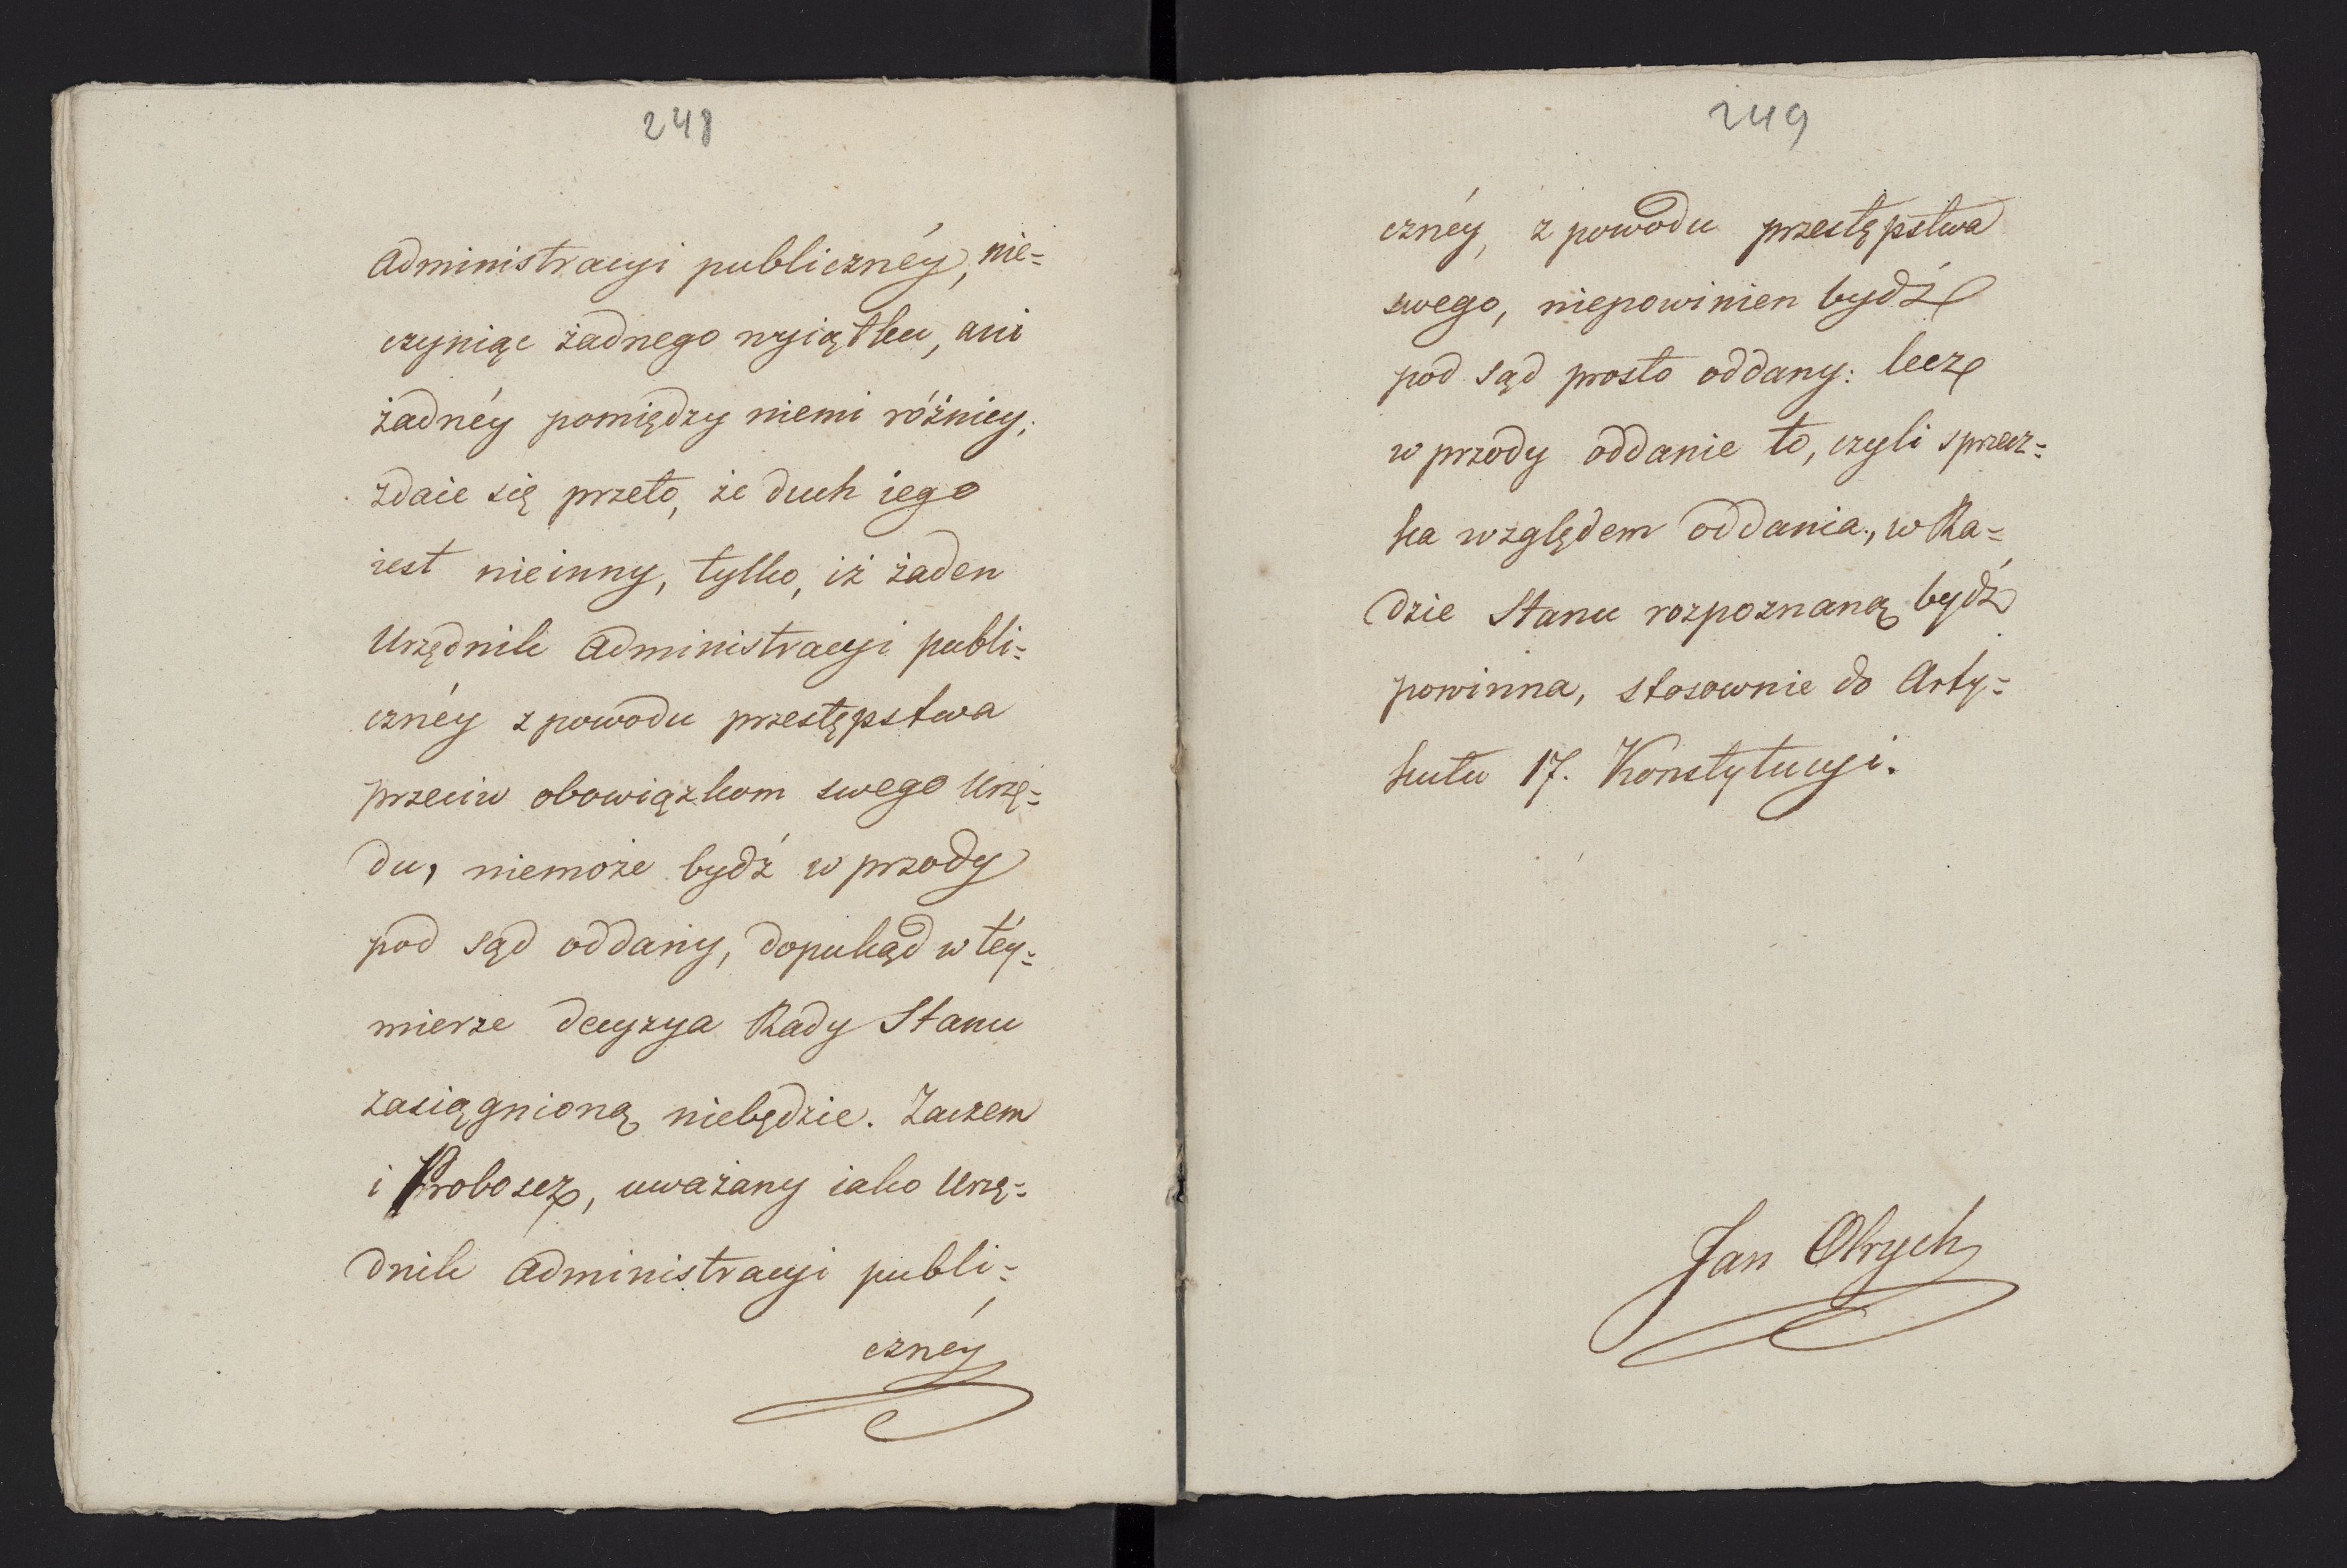 248
Administracyi publicznéy, nie=
czyniąc żadnego wyiątku, ani
żadnéy pomiędzy niemi różnicy;
zdaie się przeto, że duch iego
iest nieinny, tylko, iż żaden
Urzędnik Administracyi publi=
cznéy z powodu przestępstwa
przeciw obowiązkom swego Urzę=
du, niemoże bydź w przody
pod sąd oddany, dopukąd w téy=
mierze decyzya Rady Stanu
zasiągnioną niebędzie. Zaczem
i Proboszcz, uważany iako Urzę=
dnik Administracyi publi=
cznéy
249
cznéy, z powodu przestępstwa
swego, niepowinien bydź
pod sąd prosto oddany: lecz
w przody oddanie to, czyli sprzecz=
ka względem oddania, w Ra=
dzie Stanu rozpoznaną bydź
powinna, stosownie do Arty=
kułu 17. Konstytucyi.
Jan